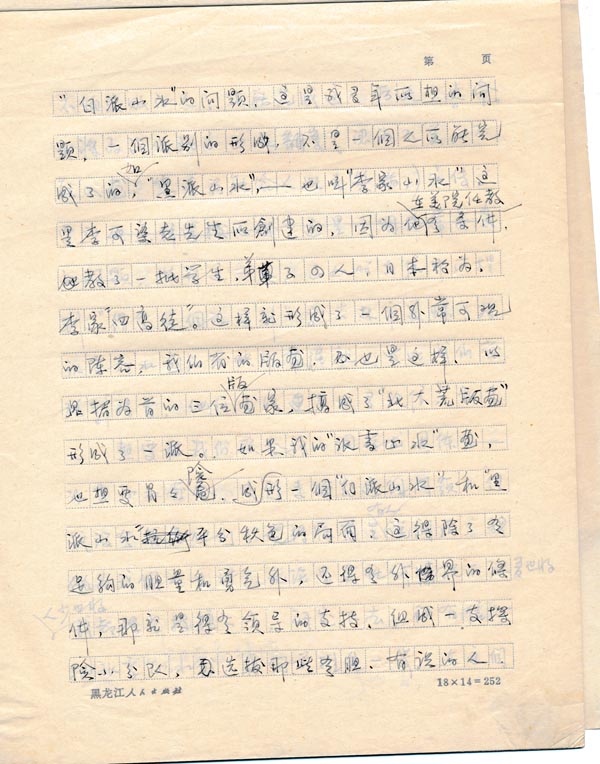 第 页
"白派山水"的问题，这是我多年所想的问
题，一個派别的形成，不是一個人所能完
成了的，如"黑派山水"——也叫"李家山水"这
是李可染老先生所創建的，因为他有条件，在美院任教
教了一批学生，弟子四人，日本称为，
李家"四高徒"。这样就形成了一個非常可观
的陈容，我们省的版画，不也是这样，以
晁楣为首的三位版画家，搞成了"北大荒版画"
形成了一派。如果我的"冰雪山水"画，
也想要冒个险，形成一個"白派山水"和"黑
派山水"平分秋色的局面，这得除了有
足夠的胆量和勇气外，还得有外界的條
件，那就是得有领导的支持，组成一支探
险小分队，选拔那些有胆、有识的人
黑龙江人民出版社
18×14=252